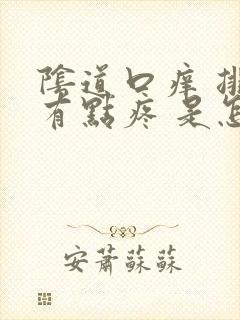 陰道口痒 排
有點疼 是怎
安蕭蘇蘇